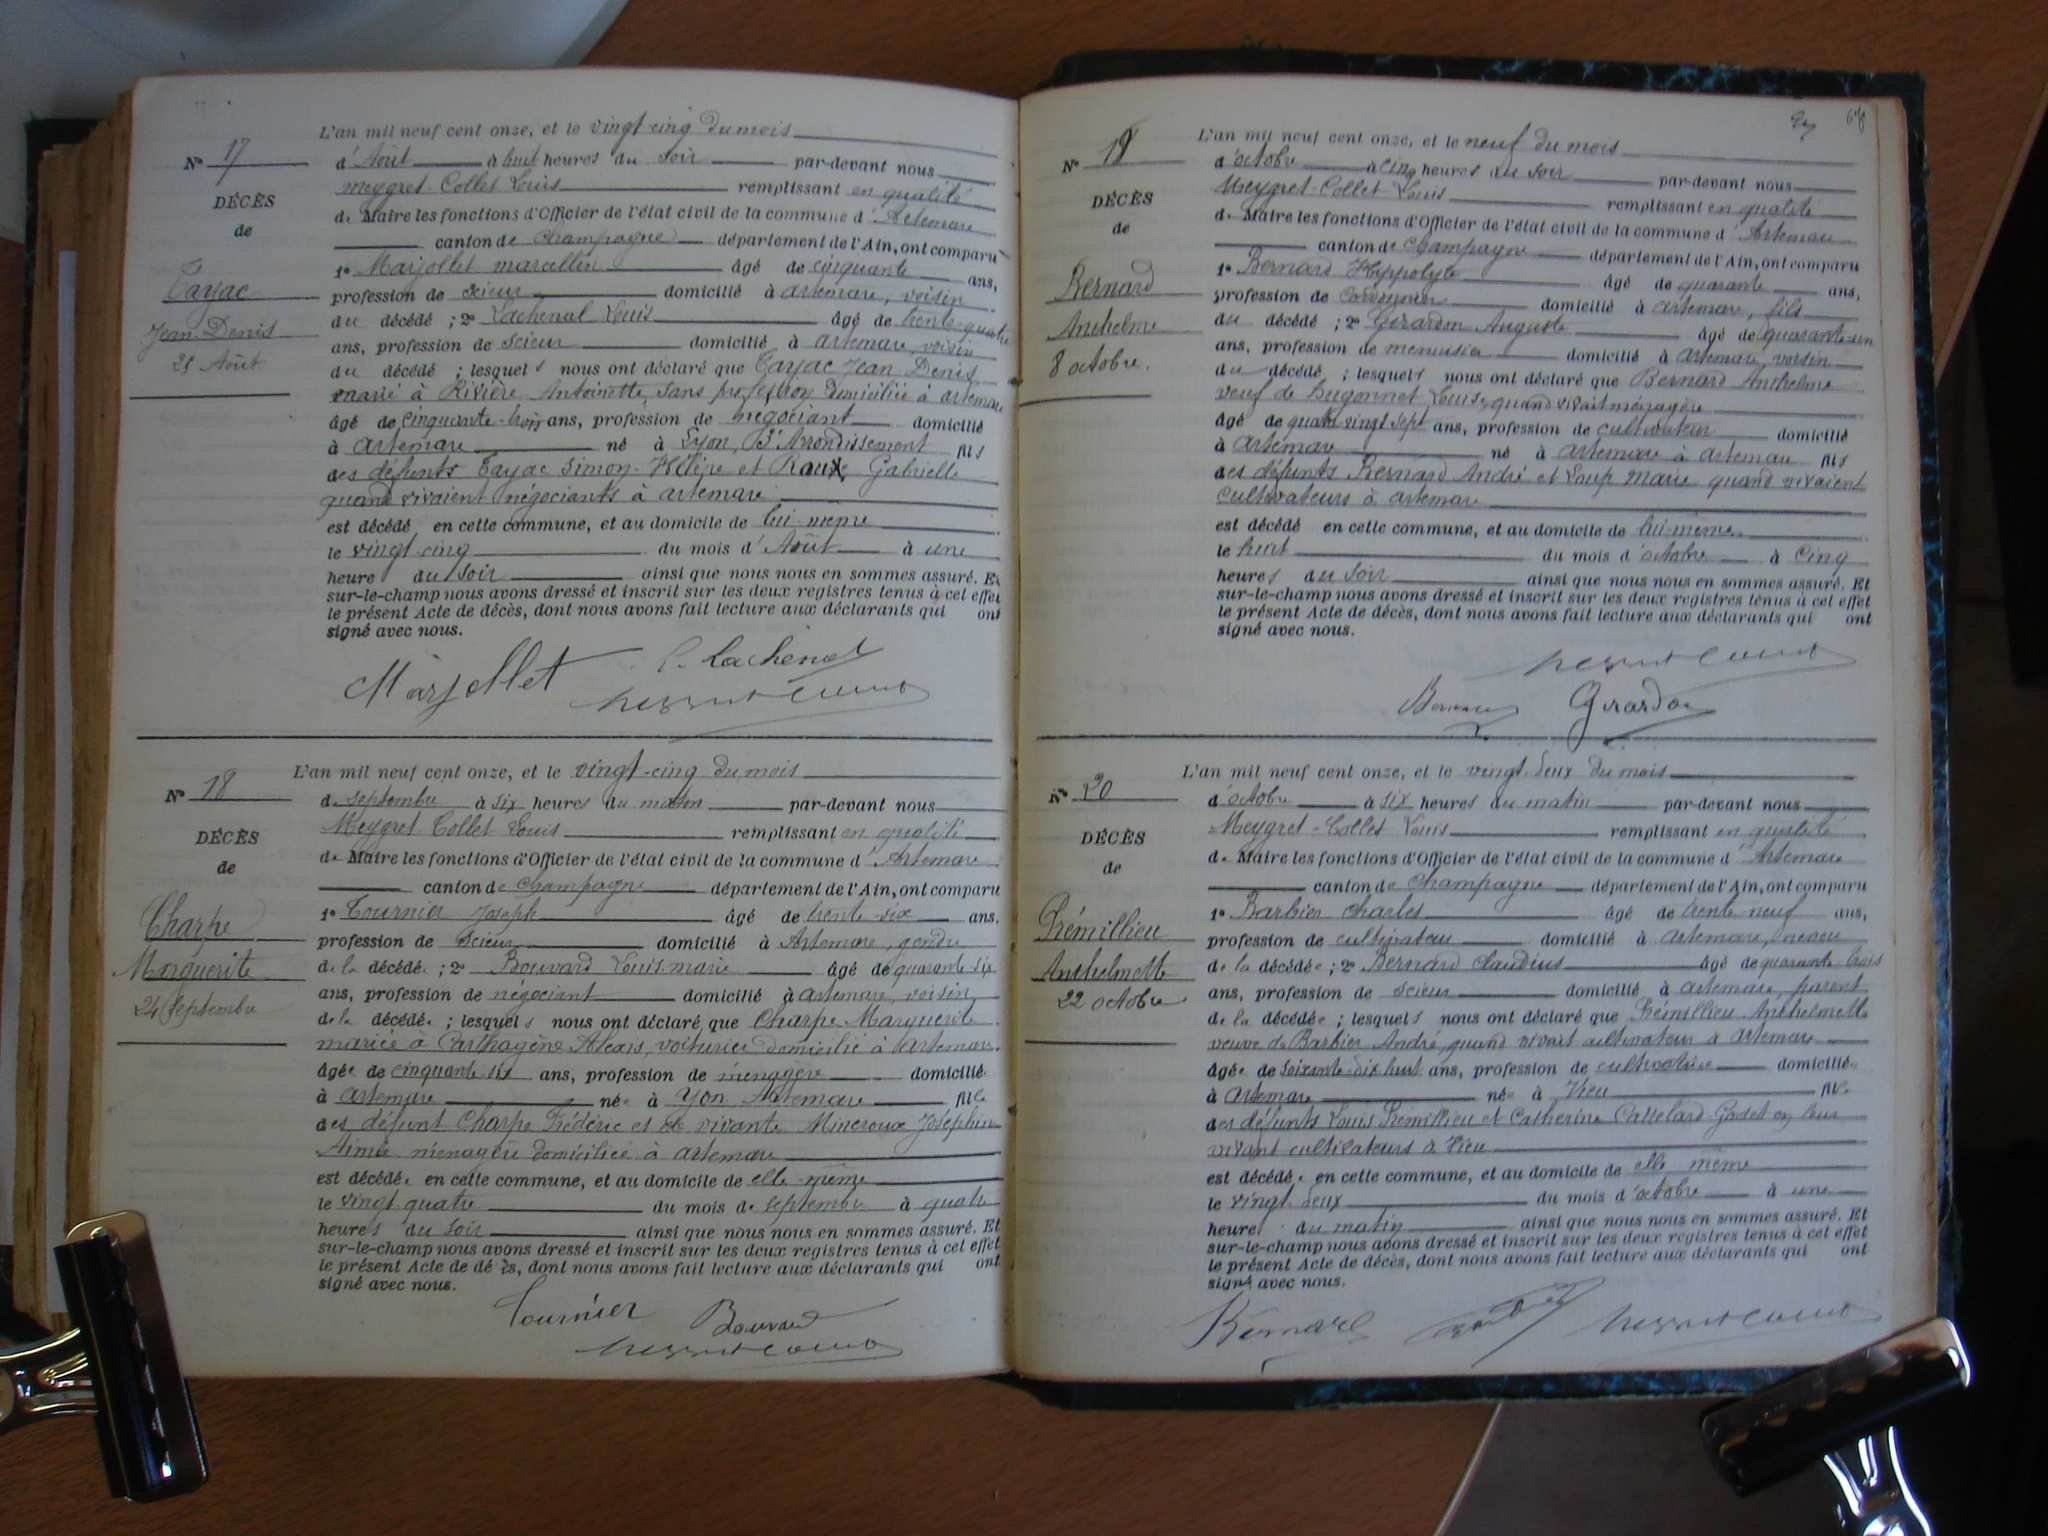 N° 17
DÉCÈS
de
Tayac
Jean Denis
25 Août
L'an mil neuf cent onze, et le vingt-cinq du mois
d'Août à huit heures du soir par-devant nous
Meygret-Collet Louis remplissant en qualité
de Maire les fonctions d'Officier de l'état civil de la commune d'Artemare
canton de Champagne département de l'Ain, ont comparu
1° Marjollet Marcellin âgé de cinquante ans,
profession de scieur domicilié à Artemare, voisin
du décédé ; 2° Lachenal Louis âgé de trente-quatre
ans, profession de scieur domicilié à Artemare, voisin
du décédé ; lesquels nous ont déclaré que Tayac Jean Denis
marié à Rivière Antoinette, sans profession domiciliée à Artemare
âgé de cinquante-trois ans, profession de négociant domicilié
à Artemare né à Lyon, 3e Arrondissement fils
des défunts Tayac Simon et Gabrielle
quand vivaient négociants à Artemare
est décédé en cette commune, et au domicile de lui-même
le vingt-cinq du mois d'Août à une
heure du soir ainsi que nous nous en sommes assuré. Et
sur-le-champ nous avons dressé et inscrit sur les deux registres tenus à cet effet
le présent Acte de décès, dont nous avons fait lecture aux déclarants qui ont
signé avec nous.
Marjollet L. Lachenal
N° 18
DÉCÈS
de
Charpe
Marguerite
24 Septembre
L'an mil neuf cent onze, et le vingt-cinq du mois
de septembre à six heures du matin par-devant nous
Meygret Collet Louis remplissant en qualité
de Maire les fonctions d'Officier de l'état civil de la commune d'Artemare
canton de Champagne département de l'Ain, ont comparu
1° Tournier Joseph âgé de trente-six ans.
profession de scieur domicilié à Artemare, gendre
de la décédée ; 2° Bouvard Louis-Marie âgé de quarante six
ans, profession de négociant domicilié à Artemare, voisin
de la décédée ; lesquels nous ont déclaré que Charpe Marguerite
mariée à Carthagène Alexis, voiturier domicilié à Artemare
âgée de cinquante six ans, profession de ménagère domiciliée
à Artemare née à Yon Artemare fille
des défunt Charpe Frédéric et de vivante Joséphine
Aimée ménagère domiciliée à Artemare
est décédée en cette commune, et au domicile de elle-même
le vingt quatre du mois de septembre à quatre
heures du soir ainsi que nous nous en sommes assuré. Et
sur-le-champ nous avons dressé et inscrit sur les deux registres tenus à cet effet
le présent Acte de décès, dont nous avons fait lecture aux déclarants qui ont
signé avec nous.
Tournier Bouvard
68
N° 19
DÉCÈS
de
Bernard
Anthelme
8 octobre.
L'an mil neuf cent onze, et le neuf du mois
d'octobre à cinq heures du soir par-devant nous
Meygret-Collet Louis remplissant en qualité
de Maire les fonctions d'Officier de l'état civil de la commune d'Artemare
canton de Champagne département de l'Ain, ont comparu
1° Bernard Hippolyte âgé de quarante ans,
profession de cordonnier domicilié à Artemare, fils
du décédé ; 2° Girardon Auguste âgé de quarante-un
ans, profession de menuisier domicilié à Artemare, voisin
du décédé ; lesquels nous ont déclaré que Bernard Anthelme
veuf de Hugonnet Louise, quand vivait ménagère
âgé de quatre vingt sept ans, profession de cultivateur domicilié
à Artemare né à Artemare à Artemare fils
des défunts Bernard André et Loup Marie quand vivaient
cultivateurs à Artemare
est décédé en cette commune, et au domicile de lui-même
le huit du mois d'octobre à cinq
heures du soir ainsi que nous nous en sommes assuré. Et
sur-le-champ nous avons dressé et inscrit sur les deux registres tenus à cet effet
le présent Acte de décès, dont nous avons fait lecture aux déclarants qui ont
signé avec nous.
Bernard Girardon
N° 20
DÉCÈS
de
Prémillieu
Anthelmette
22 octobre
L'an mil neuf cent onze, et le vingt-deux du mois
d'octobre à six heures du matin par-devant nous
Meygret-Collet Louis remplissant en qualité
de Maire les fonctions d'Officier de l'état civil de la commune d'Artemare
canton de Champagne département de l'Ain, ont comparu
1° Barbier Charles âgé de trente-neuf ans,
profession de cultivateur domicilié à Artemare, neveu
de la décédée ; 2° Bernard Claudius âgé de quarante trois
ans, profession de scieur domicilié à Artemare, parent
de la décédée ; lesquels nous ont déclaré que Prémillieu Anthelmette
veuve de Barbier André, quand vivait cultivateur à Artemare
âgée de soixante-dix huit ans, profession de cultivatrice domiciliée
à Artemare née à Vieu fille
des défunts Louis Prémillieu et Catherine Godet en leur
vivant cultivateurs à Vieu
est décédée en cette commune, et au domicile de elle même
le vingt-deux du mois d'octobre à une
heure du matin ainsi que nous nous en sommes assuré. Et
sur-le-champ nous avons dressé et inscrit sur les deux registres tenus à cet effet
le présent Acte de décès, dont nous avons fait lecture aux déclarants qui ont
signé avec nous.
Bernard